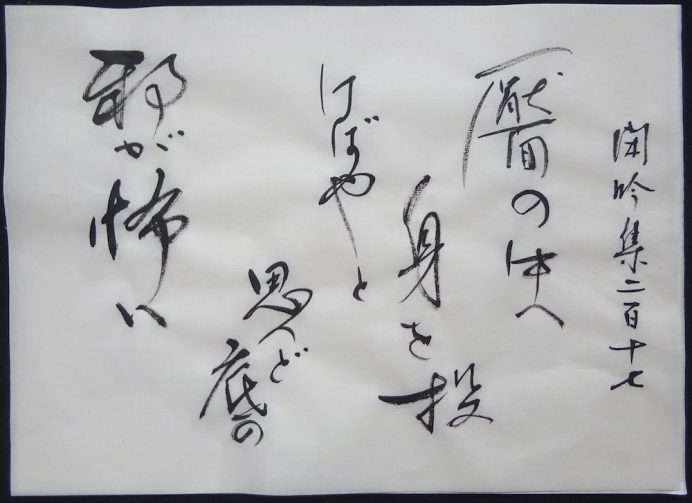 閑吟集二百十七
靨の中へ
身を投
けばやと
思へど
底の
邪が怖い